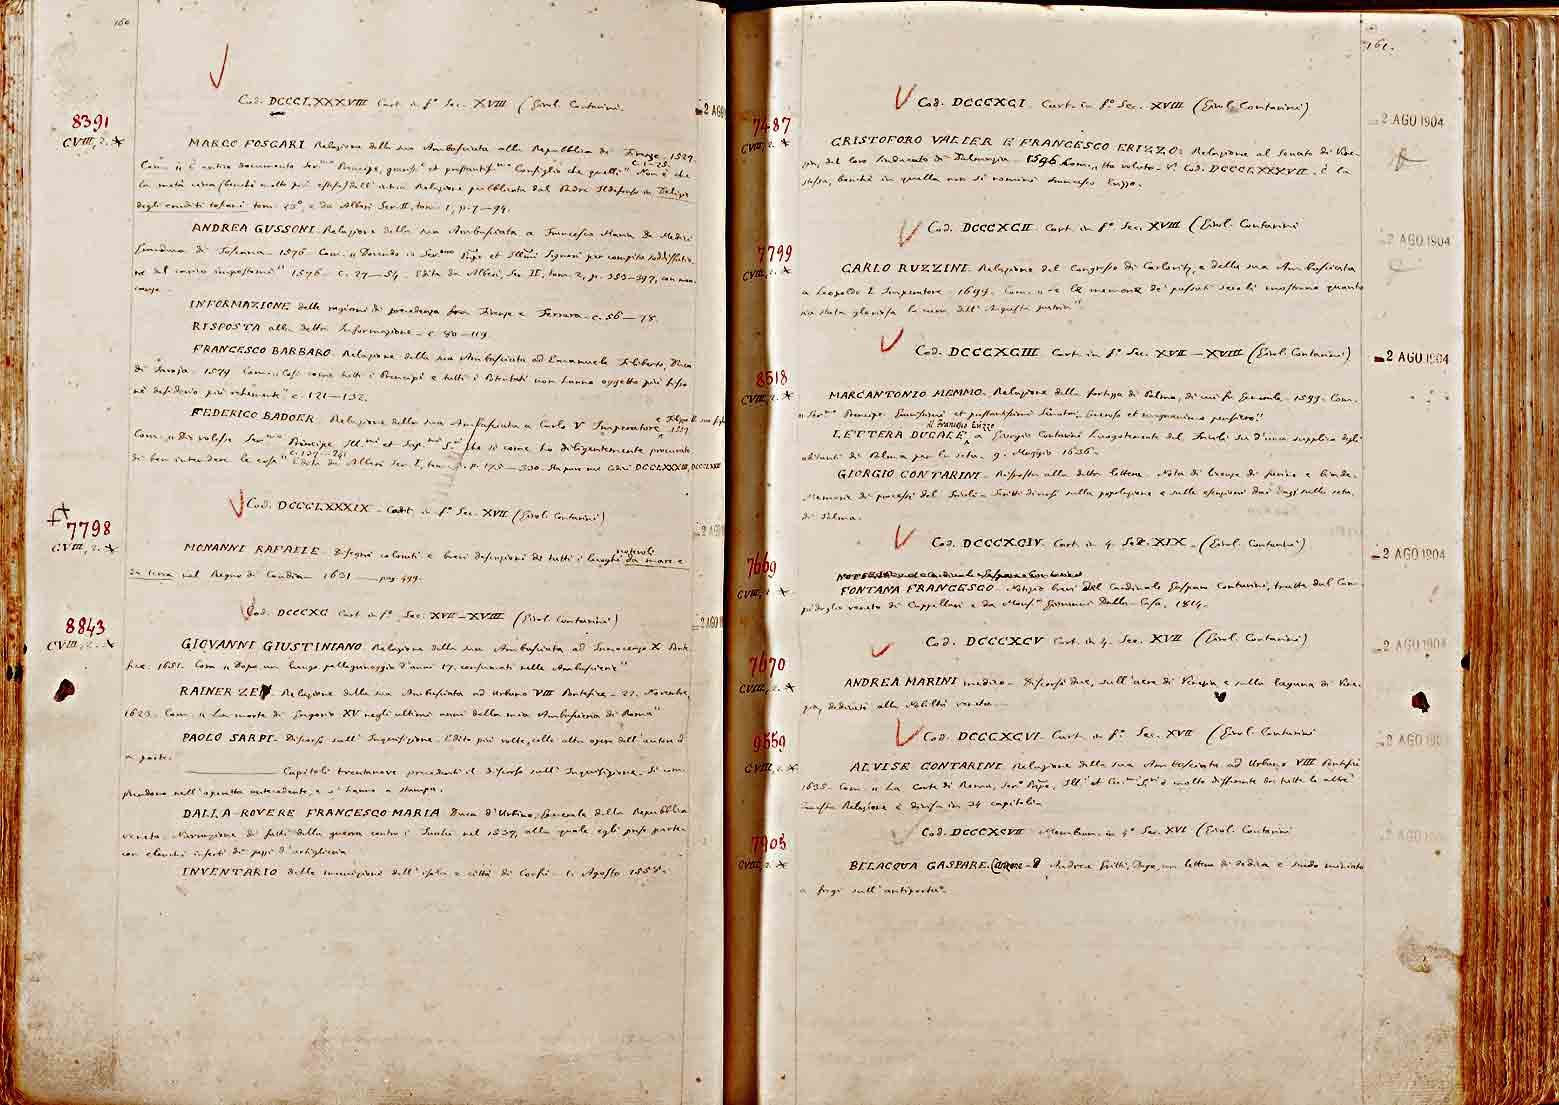 160
Cod. DCCCLXXXVIII Cart. in fº. Sec. XVIII (Girol. Contarini.
2 AGO
8391
CVIII, 2.
MARCO FOSCARI Relazione della sua Ambasciata alla Repubblica di Firenze 1527.
c. 1-25.
Com. „ È antico documento Principe, et Consiglio che quelli" Non è che
la metà circa (benchè molto più estesa) dell'altra Relazione pubblicata dal Padre Ildefonso in Delizie
degli eruditi toscani tom. 23º, e da Albèri Ser. II, tom. 1, p. 7-94.
ANDREA GUSSONI. Relazione della sua Ambasciata a Francesco Maria De Medici
Granduca di Toscana - 1576 Com. „ Dovendo io et Signori per compita
del carico impostomi" 1576 - c. 27-54. Edita da Albèri, Ser. II, tom. 2, p. 353-397, con
INFORMAZIONE delle ragioni di precedenza fra Firenze e Ferrara - c. 56-78.
RISPOSTA alla detta Informazione - c. 80-119.
FRANCESCO BARBARO. Relazione della sua Ambasciata ad Emanuele Filiberto, Duca
di Savoja - 1579 Com. „ Così come tutti i Principi e tutti i Potentati non hanno oggetto più fisso
nè desiderio più c. 121-132.
FEDERICO BADOER. Relazione della sua Ambasciata a Carlo V Imperatore e Filippo II suo figlio
1557
Com. „ Dio volesse Principe, et che si come ho diligentemente procurato
c. 137
di ben intendere le cose" Edita da Albèri Ser. I, tom. 3, p. 175-330. Sta pure nei Codici DCCLXXXIII, DCCLXXII
Cod. DCCCLXXXIX - Cart. in fº. Sec. XVII (Girol. Contarini)
2 AGO
7798
CVIII, 2.
MONANNI RAFAELE - Disegni coloriti e brevi descrizioni di tutti i luoghi notevoli da mare e
da terra nel Regno di Candia - 1631 - pag. 499.
Cod. DCCCXC Cart. in fº. Sec. XVII-XVIII (Girol. Contarini)
2 AGO
8843
CVIII, 2.
GIOVANNI GIUSTINIANO. Relazione della sua Ambasciata ad Innocenzo X
1651. Com. „ Dopo un lungo pellegrinaggio d'anni 17, consumati nelle Ambascierie"
RAINER ZEN - Relazione della sua Ambasciata ad Urbano VIII Pontefice - 22. Novembre,
1623. Com. „ La morte di Gregorio XV negli ultimi anni della mia Ambascieria di Roma"
PAOLO SARPI - Discorso sull'Inquisizione. Edito più volte, colle altre opere dell'autore o
a parte.
Capitoli trentanove precedenti il discorso sull'Inquisizione. Si
prendono nell'operetta antecedente, e si hanno a stampa.
DALLA ROVERE FRANCESCO MARIA Duca d'Urbino, Generale della Repubblica
veneta. Narrazione di fatti della guerra contro i Turchi nel 1537, alla quale egli prese parte.
con elenchi inserti di pezzi d'artiglieria
INVENTARIO delle munizioni dell'isola e città di Corfù - 1. Agosto 1558.
161.
Cod. DCCCXCI - Cart. in fº. Sec. XVIII (Girol. Contarini)
2 AGO 1904
7487
CVIII, 2.
CRISTOFORO VALIER E FRANCESCO ERIZZO: Relazione al Senato di
zia, del loro Sindacato di Dalmazia - 1596 Com. „ Ha voluto - V. Cod. DCCCLXXXVII. È la
stessa, benchè in quella non si nomini Francesco Erizzo.
Cod. DCCCXCII - Cart. in fº. Sec. XVIII (Girol. Contarini
2 AGO 1904
7799
CVIII, 2.
CARLO RUZZINI. Relazione del Congresso di Carlovitz, e della sua Ambasciata
a Leopoldo I Imperatore - 1699. Com. „ Se le memorie de' passati secoli mostrano quanto
sia stata gloriosa la cura dell'Augusta patria"
Cod. DCCCXCIII Cart. in fº. Sec. XVII-XVIII (Girol. Contarini)
2 AGO 1904
8518
CVIII, 2.
MARCANTONIO MEMMO. Relazione della fortezza di Palma, di cui fu Generale - 1599. Com.
Principe Gravissimi et prestantissimi Senatori, Generoso et magnanimo pensiero"
di Francesco Erizzo
LETTERA DUCALE, a Giorgio Contarini Luogotenente del Friuli su d'una supplica degli
abitanti di Palma per la seta - 9. Maggio 1636.
GIORGIO CONTARINI - Risposta alla detta lettera. Nota di
Memorie di processi del Friuli - Scritti diversi sulla popolazione e sulle esenzioni dai Dazi sulla seta,
di Palma.
Cod. DCCCXCIV - Cart. in 4. Sec. XIX - (Girol. Contarini)
2 AGO 1904
7669
CVIII, 1.
FONTANA FRANCESCO. Notizie brevi del Cardinale Gasparo Contarini, tratte dal Cam-
pidoglio veneto di Cappellari e da Giovanni Dalla Casa, 1814.
Cod. DCCCXCV Cart. in 4. Sec. XVII (Girol. Contarini)
2 AGO 1904
7670
CVIII, 2.
ANDREA MARINI medico - Discorsi due, sull'aere di Venezia e sulla laguna di Vene-
zia, dedicati alla Nobiltà veneta.
Cod. DCCCXCVI - Cart. in fº. Sec. XVII (Girol. Contarini
2 AGO 1904
9559
CVIII, 2.
ALVISE CONTARINI. Relazione della sua Ambasciata ad Urbano VIII Pontefice
1635. Com. „ La Corte di Roma, è molto differente da tutte le altre
Questa Relazione è divisa in 34 capitoli.
Cod. DCCCXCVII - Membran. in 4º Sec. XVI (Girol. Contarini
2 AGO
7905
CVIII, 2.
BELACQUA GASPARE. Canzone a Andrea Gritti, Doge, con lettera di dedica e scudo miniato
a fregi sull'antiporta.